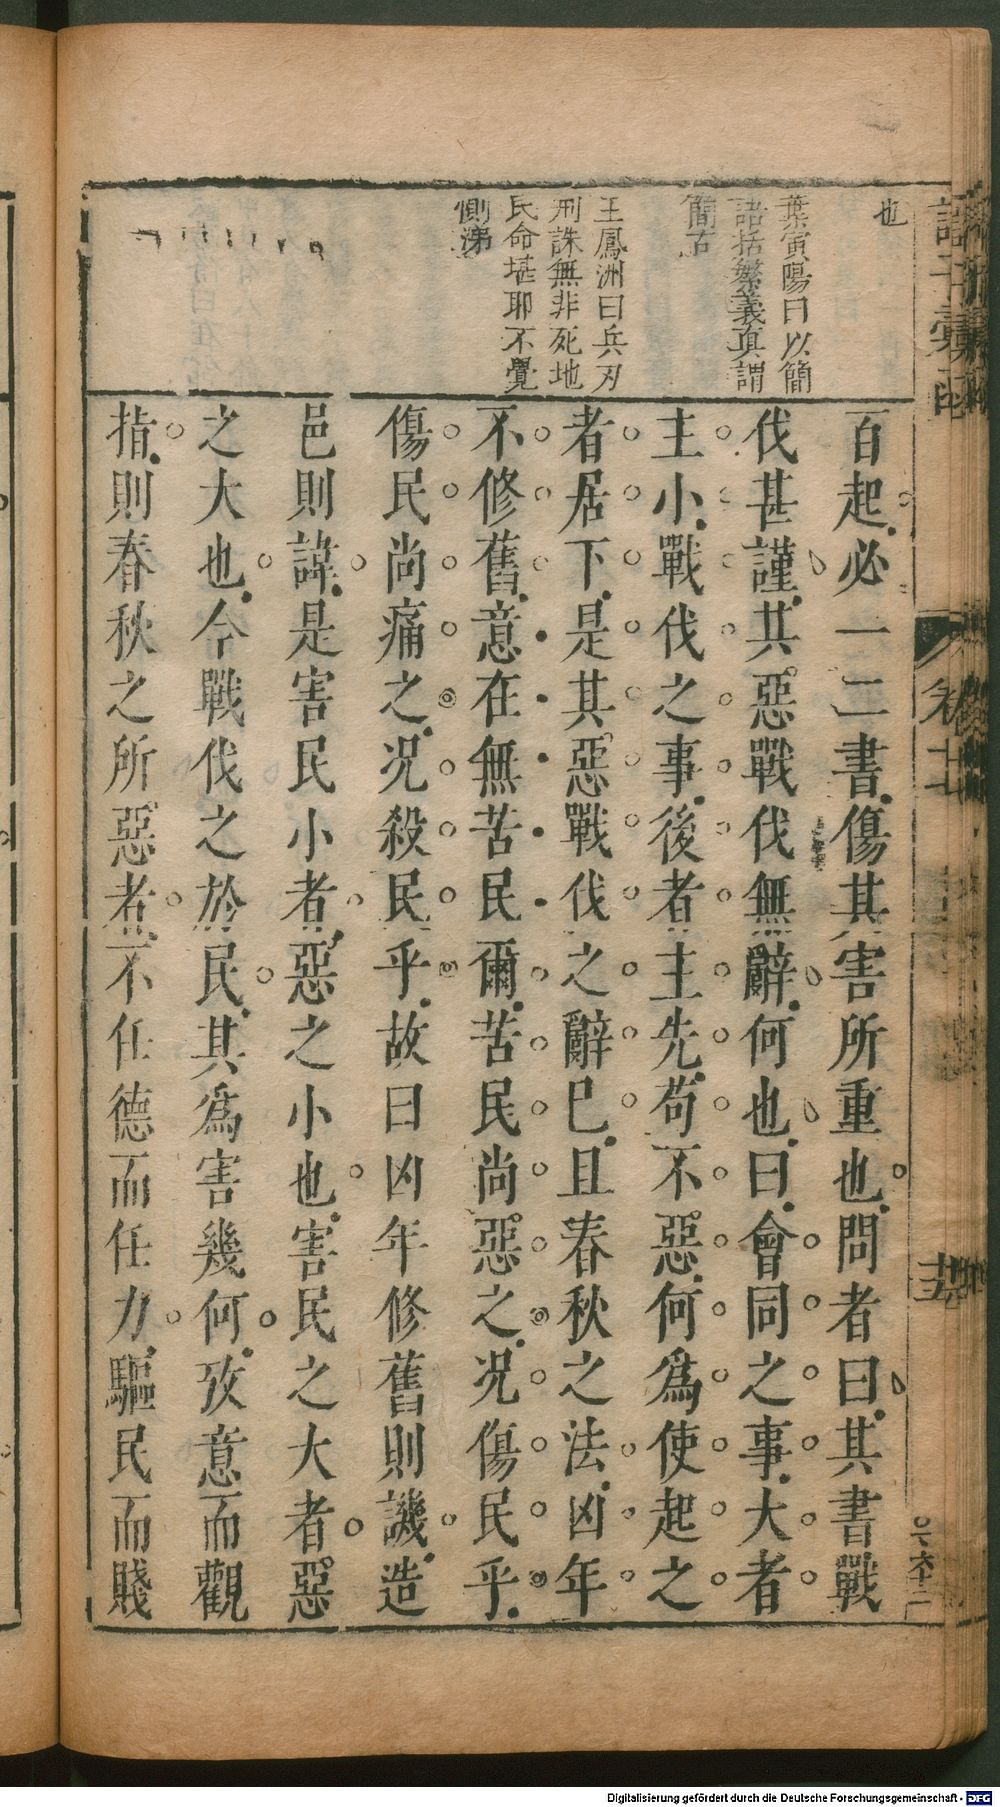 也
葉寅陽曰以簡
語括繁義眞謂
簡古
王鳳洲曰兵刃
刑誅無非死地
民命堪耶不覺
惻涕
百起必一二書傷其害所重也問者曰其書戰
伐甚謹其惡戰伐無辭何也曰會同之事大者
主小戰伐之事後者主先苟不惡何爲使起之
者居下是其惡戰伐之辭巳且春秋之法凶年
不修舊意在無苦民爾苦民尚惡之况傷民乎
傷民尚痛之况殺民乎故曰凶年修舊則譏造
邑則諱是害民小者惡之小也害民之大者惡
之大也今戰伐之於民其爲害幾何攷意而觀
指則春秋之所惡者不任德而任力驅民而賤
諸子彙函
十五
六十二
Digitalisierung gefördert durch die Deutsche Forschungsgemeinschaft - DFG